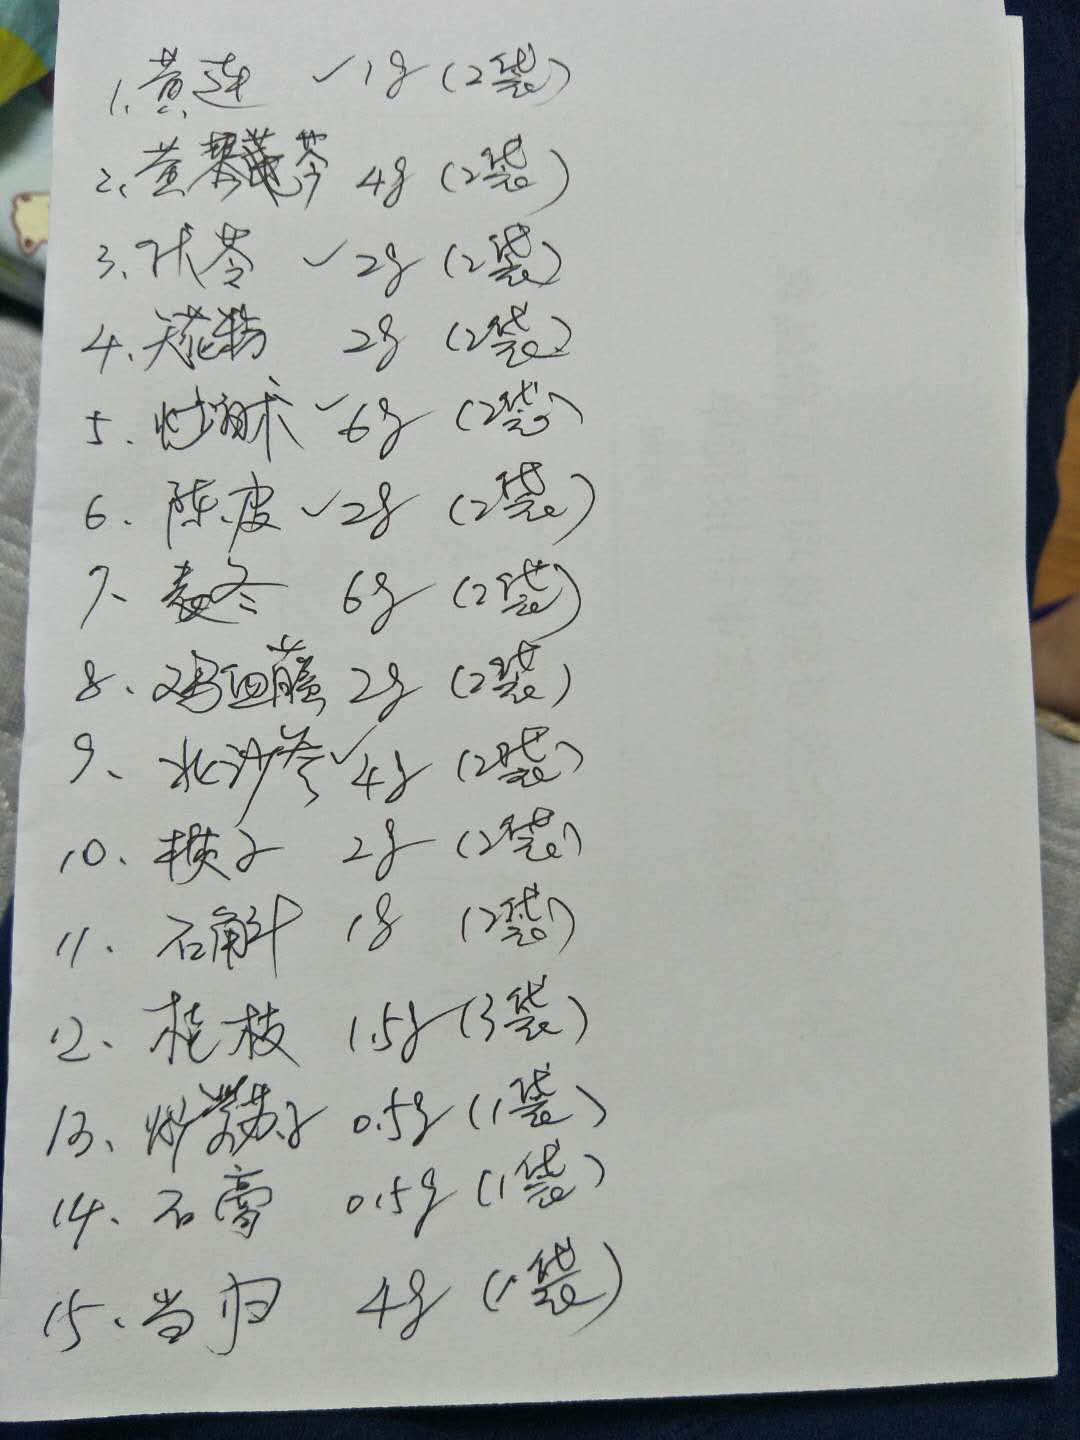 1、黄连 ✓1g(2袋)
2、黄芩 4g(2袋)
3、茯苓 ✓2g(2袋)
4、天花粉 2g(2袋)
5、炒白术 ✓6g(2袋)
6、陈皮 ✓2g(2袋)
7、麦冬 6g(2袋)
8、鸡血藤 2g(2袋)
9、北沙参 ✓4g(2袋)
10、 2g(2袋)
11、石斛 1g (2袋)
12、桂枝 1.5g(3袋)
13、炒紫苏子 0.5g(1袋)
14、石膏 0.5g(1袋)
15、当归 4g(1袋)